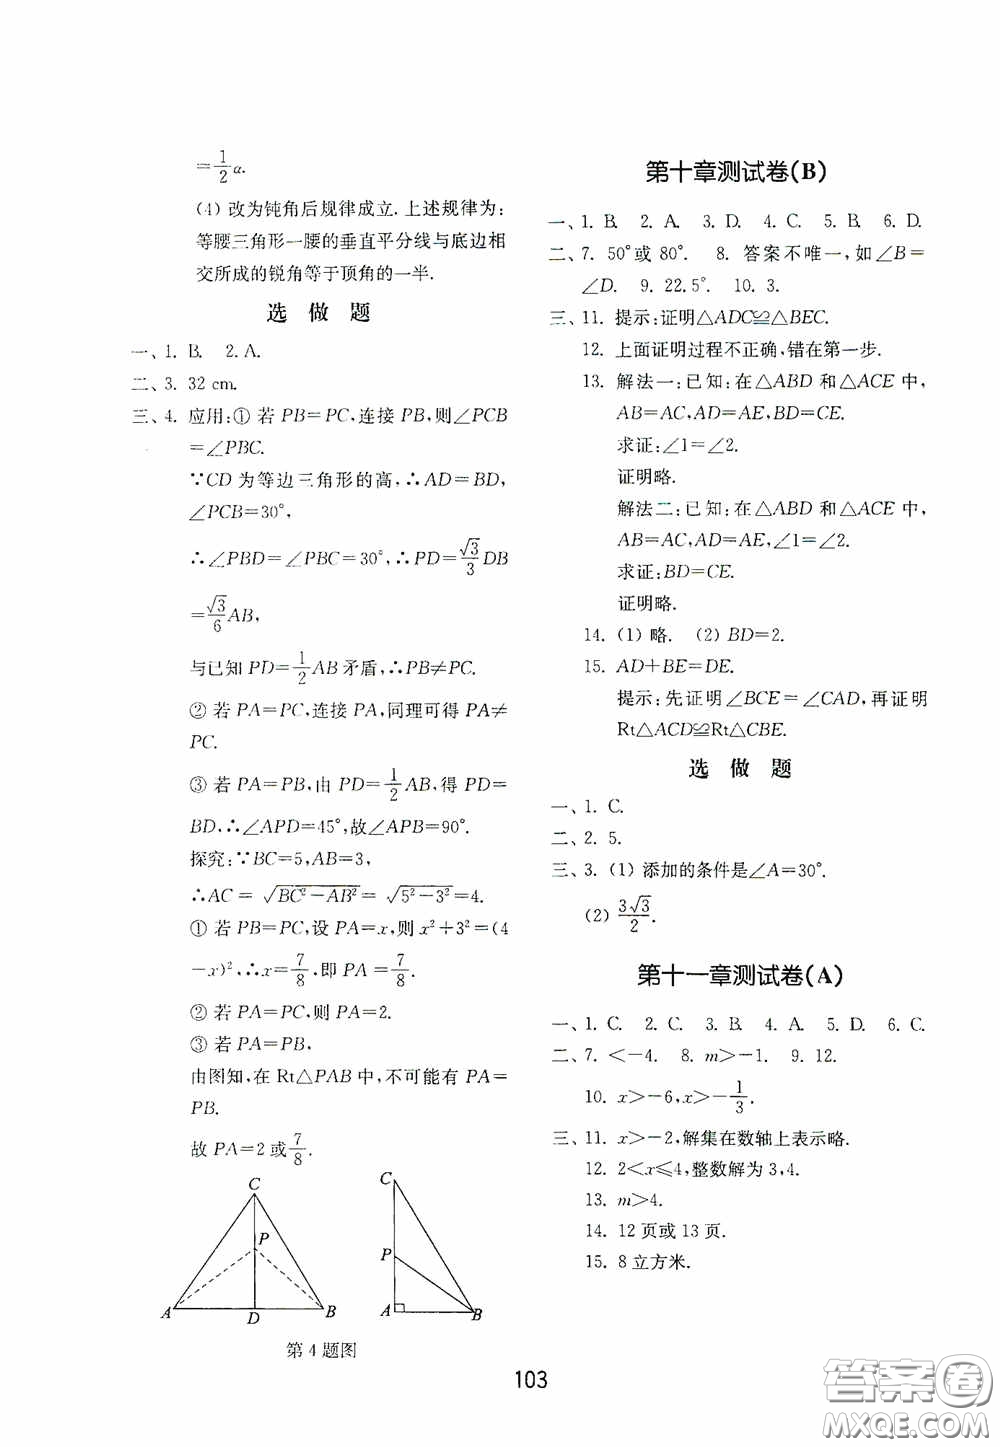 =1/2 α.
(4) 改为钝角后规律成立.上述规律为:
等腰三角形一腰的垂直平分线与底边相
交所成的锐角等于顶角的一半.
选 做 题
一、1. B. 2. A.
二、3. 32 cm.
三、4. 应用:① 若 PB=PC,连接 PB,则∠PCB
=∠PBC.
∵CD 为等边三角形的高,∴AD=BD,
∠PCB=30°,
∴∠PBD=∠PBC=30°,∴PD=√3/3 DB
=√3/6 AB,
与已知 PD=1/2 AB 矛盾,∴PB≠PC.
② 若 PA=PC,连接 PA,同理可得 PA≠
PC.
③ 若 PA=PB,由 PD=1/2 AB,得 PD=
BD,∴∠APD=45°,故∠APB=90°.
探究:∵BC=5,AB=3,
∴AC=√(BC²-AB²)=√(5²-3²)=4.
① 若 PB=PC,设 PA=x,则 x²+3²=(4
-x)²,∴x=7/8,即 PA=7/8.
② 若 PA=PC,则 PA=2.
③ 若 PA=PB,
由图知,在 Rt△PAB 中,不可能有 PA=
PB.
故 PA=2 或 7/8.
C
P
A D B
C
P
A B
第 4 题图
第十章测试卷(B)
一、1. B. 2. A. 3. D. 4. C. 5. B. 6. D.
二、7. 50°或 80°. 8. 答案不唯一,如∠B=
∠D. 9. 22.5°. 10. 3.
三、11. 提示:证明△ADC≌△BEC.
12. 上面证明过程不正确,错在第一步.
13. 解法一:已知:在△ABD 和△ACE 中,
AB=AC,AD=AE,BD=CE.
求证:∠1=∠2.
证明略.
解法二:已知:在△ABD 和△ACE 中,
AB=AC,AD=AE,∠1=∠2.
求证:BD=CE.
证明略.
14. (1) 略. (2) BD=2.
15. AD+BE=DE.
提示:先证明∠BCE=∠CAD,再证明
Rt△ACD≌Rt△CBE.
选 做 题
一、1. C.
二、2. 5.
三、3. (1) 添加的条件是∠A=30°.
(2) 3√3/2.
第十一章测试卷(A)
一、1. C. 2. C. 3. B. 4. A. 5. D. 6. C.
二、7. <-4. 8. m>-1. 9. 12.
10. x>-6,x>-1/3.
三、11. x>-2,解集在数轴上表示略.
12. 2<x≤4,整数解为 3,4.
13. m>4.
14. 12 页或 13 页.
15. 8 立方米.
103
答案卷
MXQE.COM